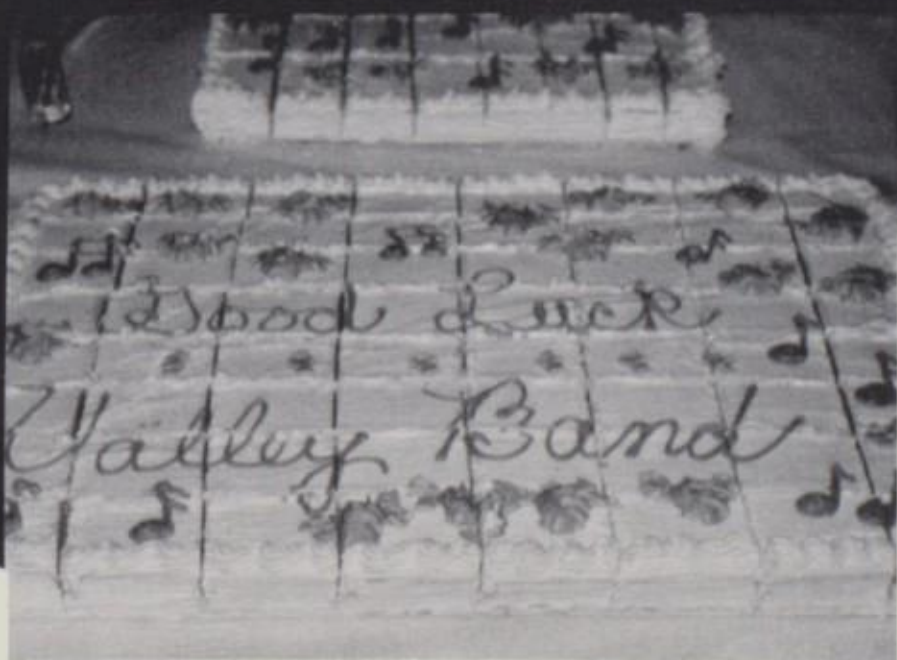 Good Luck
Valley Band